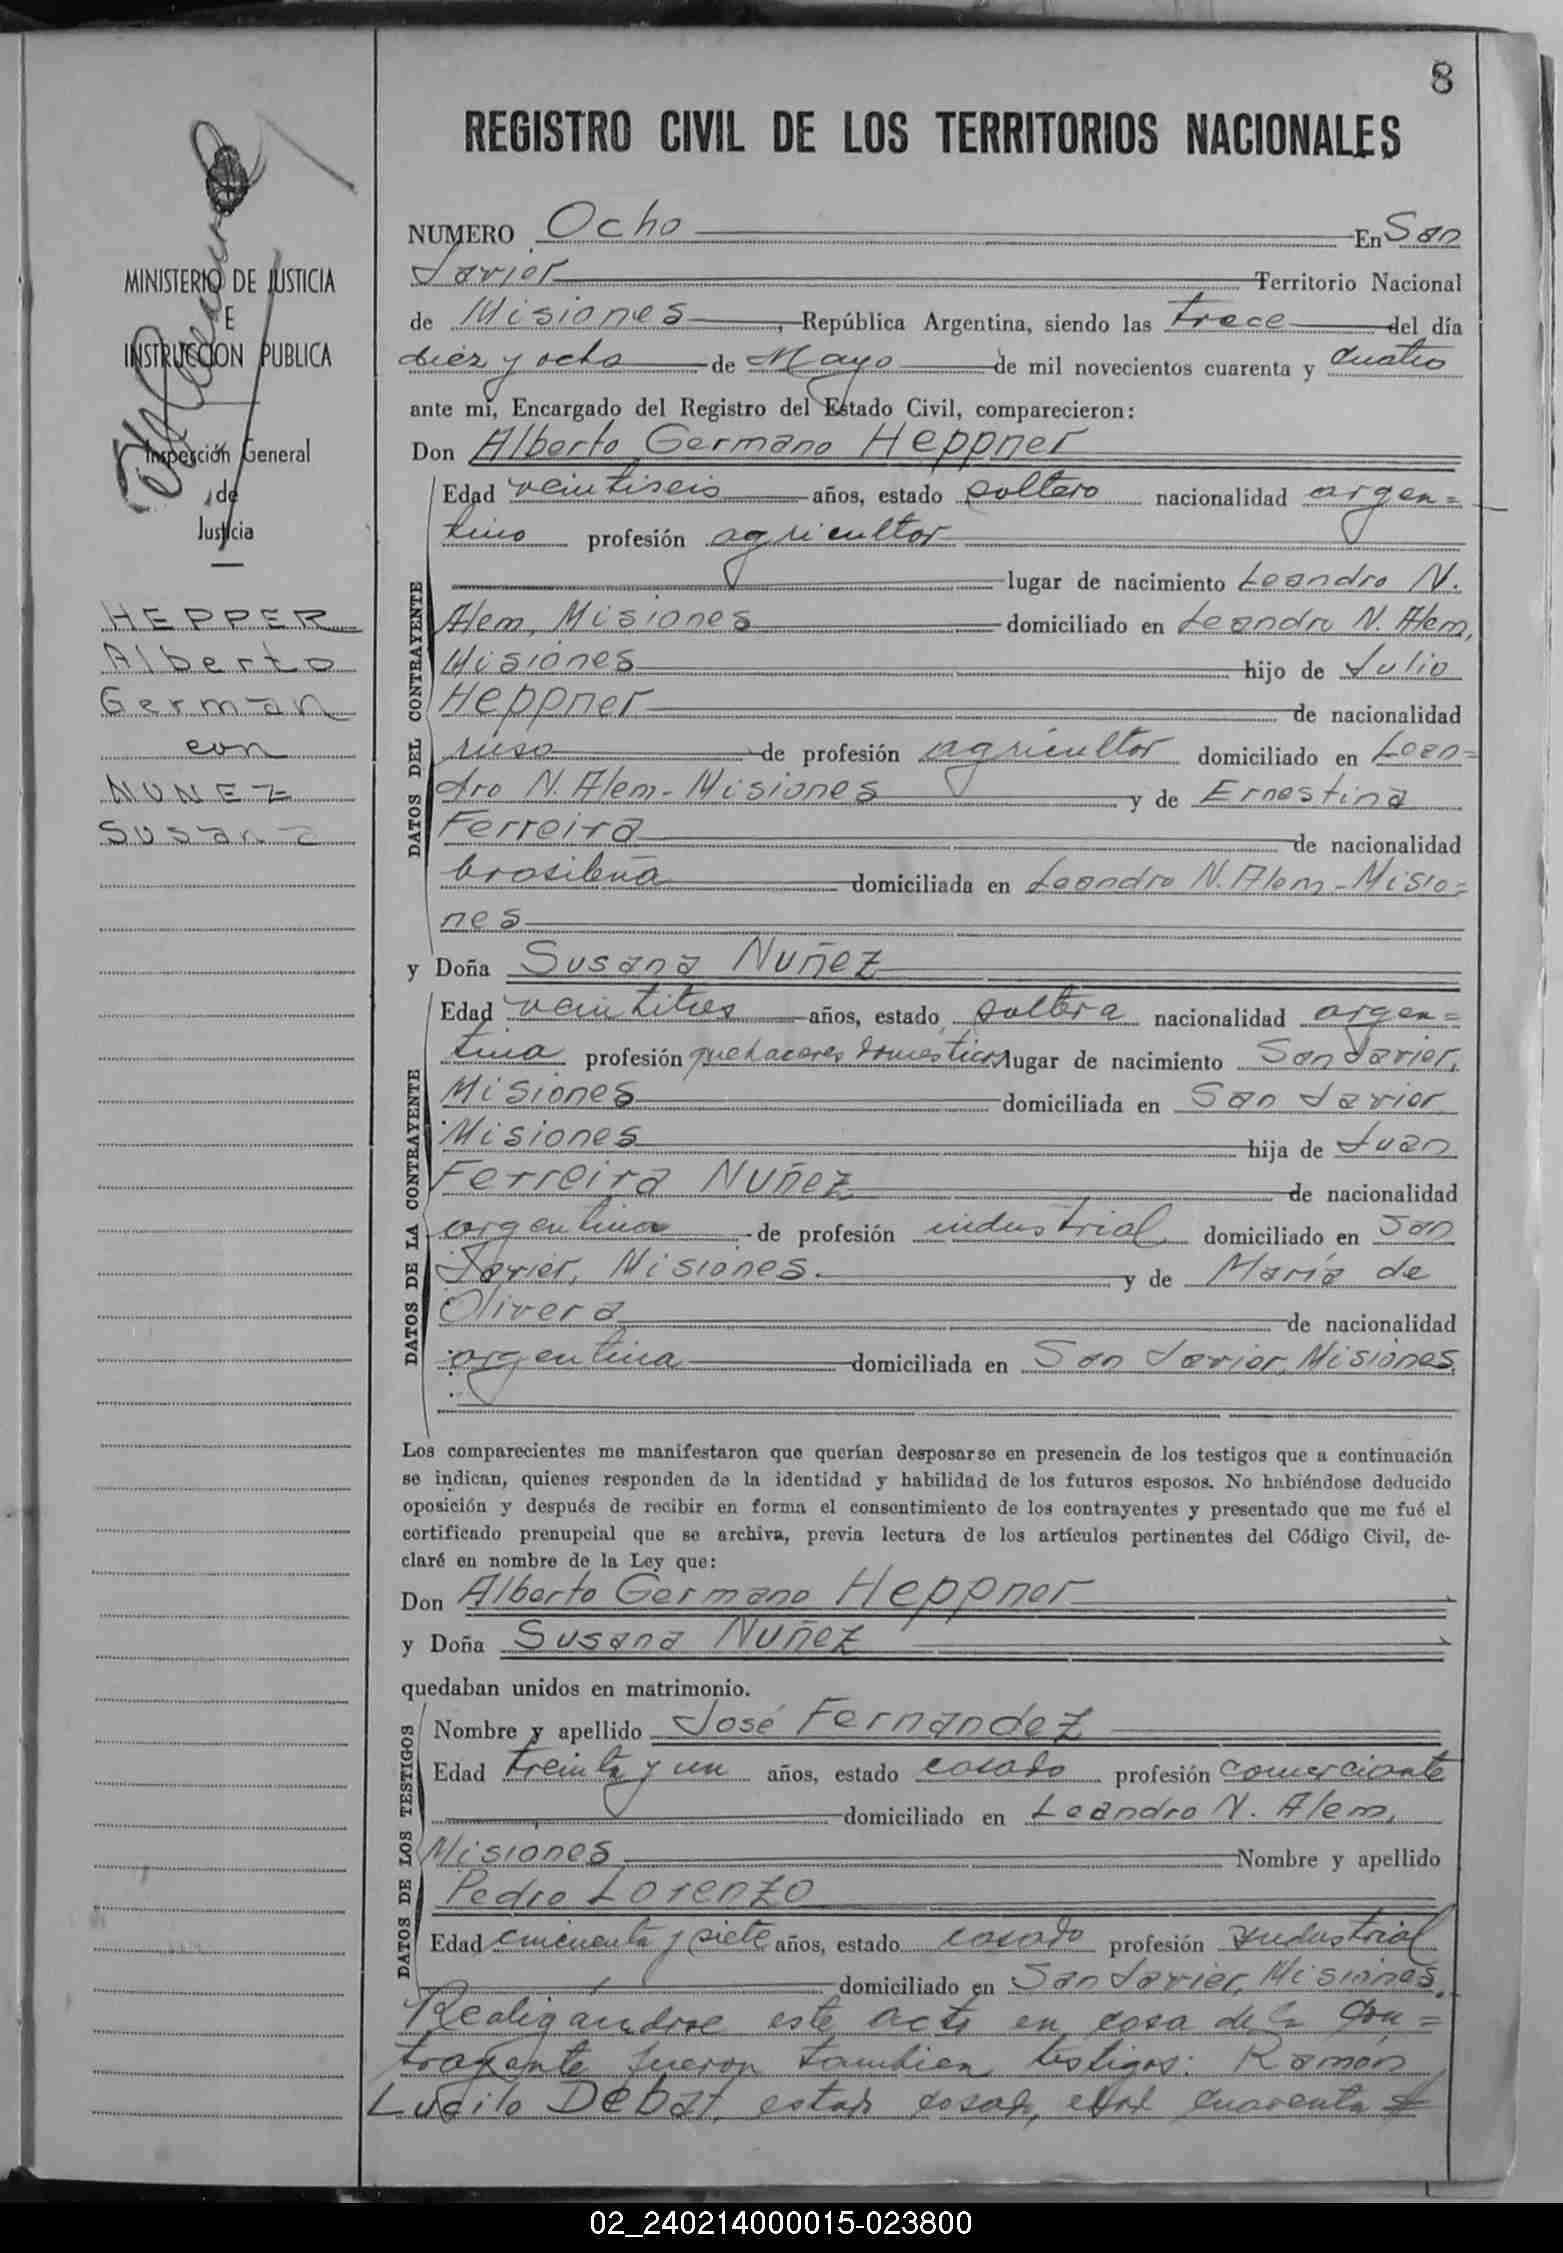 8
REGISTRO CIVIL DE LOS TERRITORIOS NACIONALES
MINISTERIO DE JUSTICIA
E
INSTRUCCION PUBLICA
Inspección General
de
Justicia
HEPPER
Alberto
German
con
NUNEZ
Susana
NUMERO Ocho En San
Javier Territorio Nacional
de Misiones, República Argentina, siendo las trece del día
diez y ocho de Mayo de mil novecientos cuarenta y cuatro
ante mí, Encargado del Registro del Estado Civil, comparecieron:
Don Alberto Germano Heppner
DATOS DEL CONTRAYENTE
Edad veintiseis años, estado soltero nacionalidad argen=
tino profesión agricultor
lugar de nacimiento Leandro N.
Alem, Misiones domiciliado en Leandro N. Alem,
Misiones hijo de Julio
Heppner de nacionalidad
ruso de profesión agricultor domiciliado en Lean=
dro N. Alem - Misiones y de Ernestina
Ferreira de nacionalidad
brasileña domiciliada en Leandro N. Alem - Misio=
nes
y Doña Susana Nuñez
DATOS DE LA CONTRAYENTE
Edad veintitres años, estado soltera nacionalidad argen=
tina profesión quehaceres domesticos lugar de nacimiento San Javier,
Misiones domiciliada en San Javier
Misiones hija de Juan
Ferreira Nuñez de nacionalidad
argentina de profesión industrial domiciliado en San
Javier, Misiones. y de María de
Olivera de nacionalidad
argentina domiciliada en San Javier, Misiones.
Los comparecientes me manifestaron que querían desposarse en presencia de los testigos que a continuación
se indican, quienes responden de la identidad y habilidad de los futuros esposos. No habiéndose deducido
oposición y después de recibir en forma el consentimiento de los contrayentes y presentado que me fué el
certificado prenupcial que se archiva, previa lectura de los artículos pertinentes del Código Civil, de-
claré en nombre de la Ley que:
Don Alberto Germano Heppner
y Doña Susana Nuñez
quedaban unidos en matrimonio.
DATOS DE LOS TESTIGOS
Nombre y apellido José Fernandez
Edad treinta y un años, estado casado profesión comerciante
domiciliado en Leandro N. Alem,
Misiones Nombre y apellido
Pedro Lorenzo
Edad cincuenta y siete años, estado casado profesión industrial
domiciliado en San Javier, Misiones.
Realizándose este acto en casa de la con=
trayente fueron tambien testigos: Ramón
Lucilo Debat, estado casado, edad cuarenta y
02_240214000015-023800